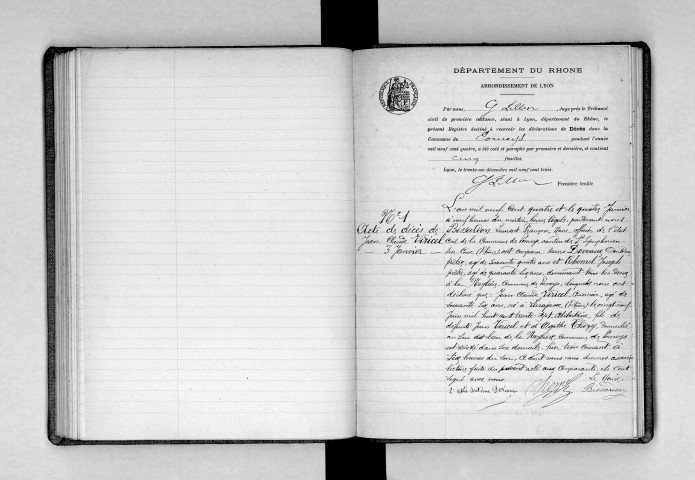 DÉPARTEMENT DU RHONE
ARRONDISSEMENT DE LYON
Par nous, , Juge près le Tribunal
civil de première instance, séant à Lyon, département du Rhône, le
présent Registre destiné à recevoir les déclarations de Décès dans la
Commune de Pomeys pendant l'année
mil neuf cent quatre, a été coté et paraphé par première et dernière, et contient
cinq feuilles
Lyon, le trente-un décembre mil neuf cent trois.
Première feuille
N° 1
Acte de décès de
Jean Claude Viricel
3 Janvier
L'an mil neuf cent quatre et le quatre Janvier
à neuf heures du matin heure légale, pardevant nous
Bissardon François, Maire officier de l'état
civil de la Commune de Pomeys canton de St Symphorien
sur Coise (Rhône) ont comparu
âgé de soixante quatre ans et Joseph
âgé de quarante six ans, domiciliés tous les deux
à la Neylière, Commune de Pomeys, lesquels nous ont
déclaré que Jean Claude Viricel, âgé de
soixante six ans, né à Larajasse (Rhône) le vingt neuf
Juin mil huit cent trente sept, Célibataire, fils de
défunts Jean Viricel et d'Agathe domicilié
au lieu de la Neylière, commune de Pomeys
est décédé dans son domicile, hier trois courant à
six heures du soir. Et dont nous nous sommes assuré
lecture faite du présent acte aux Comparants, ils l'ont
signé avec nous.
Le Maire
Bissardon